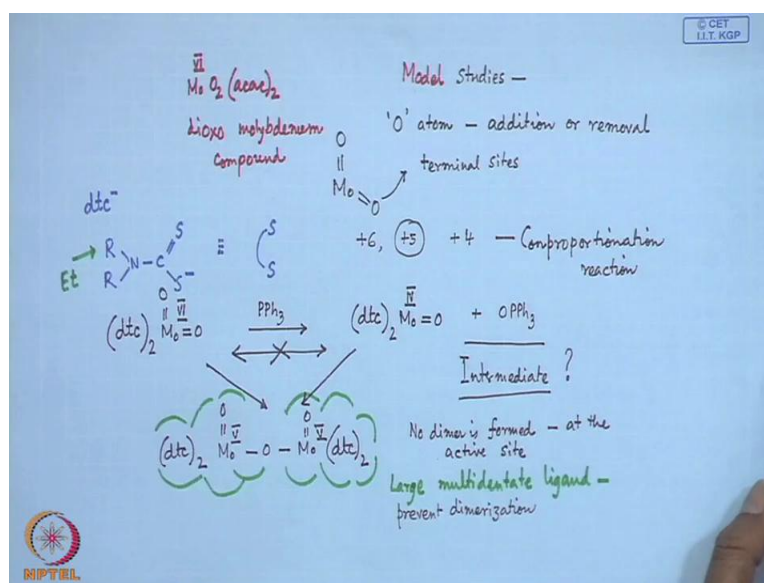 © CET
I.I.T. KGP
VI
MoO2(acac)2
dioxo molybdenum
compound
Model Studies —
'O' atom — addition or removal
terminal sites
O
||
Mo=O
+6, +5 +4 — Conproportionation
reaction
dtc⁻
Et
R
R
N-C
S
S⁻
≡
S
S
(dtc)2 Mo=O
O
VI
PPh3
(dtc)2 Mo=O
IV
+ OPPh3
Intermediate ?
(dtc)2 Mo - O - Mo (dtc)2
O
V
O
V
No dimer is formed — at the
active site
Large multidentate ligand —
prevent dimerization
NPTEL